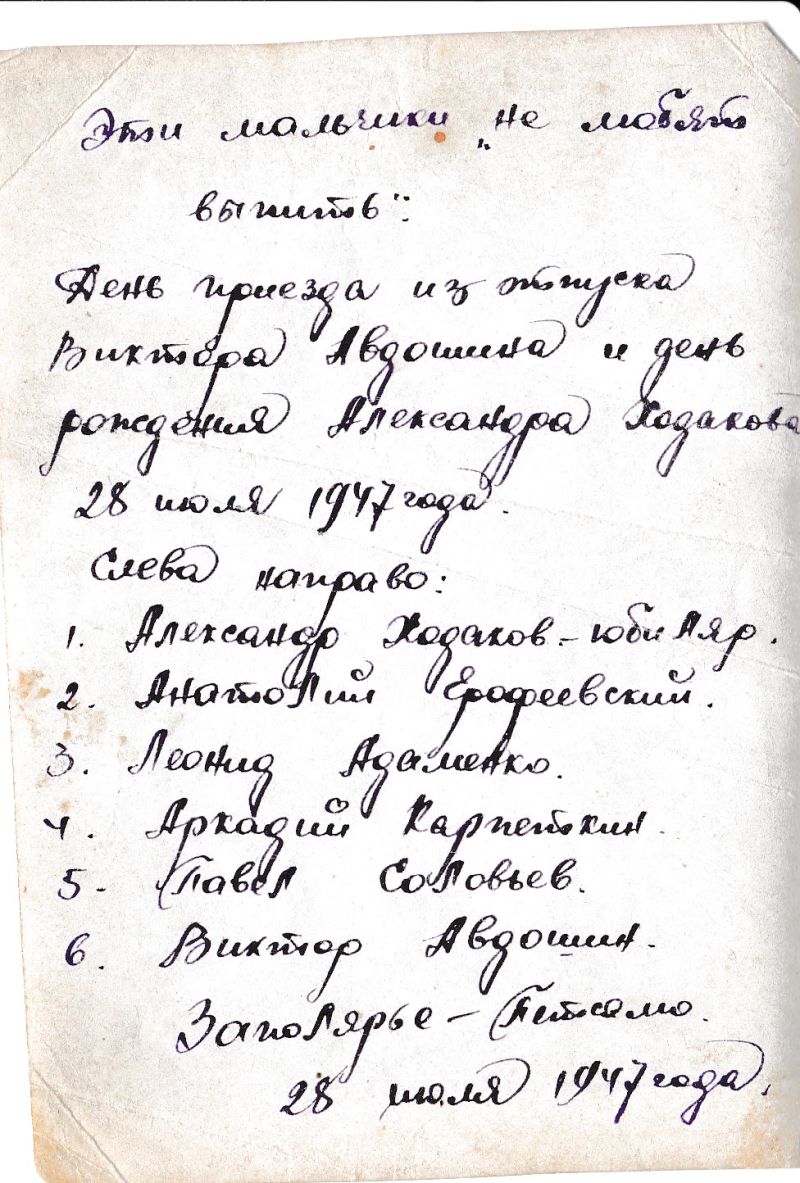 Эти мальчики „не любят
выпить":
День приезда из отпуска
Виктора Авдошина и день
рождения Александра Ходакова
28 июля 1947 года.
Слева направо:
1. Александр Ходаков - юбиляр.
2. Анатолий Ерофеевский.
3. Леонид Адаменко.
4. Аркадий Карпеткин.
5 - Павел Соловьев.
6. Виктор Авдошин.
Заполярье - Петсамо.
28 июля 1947 года.